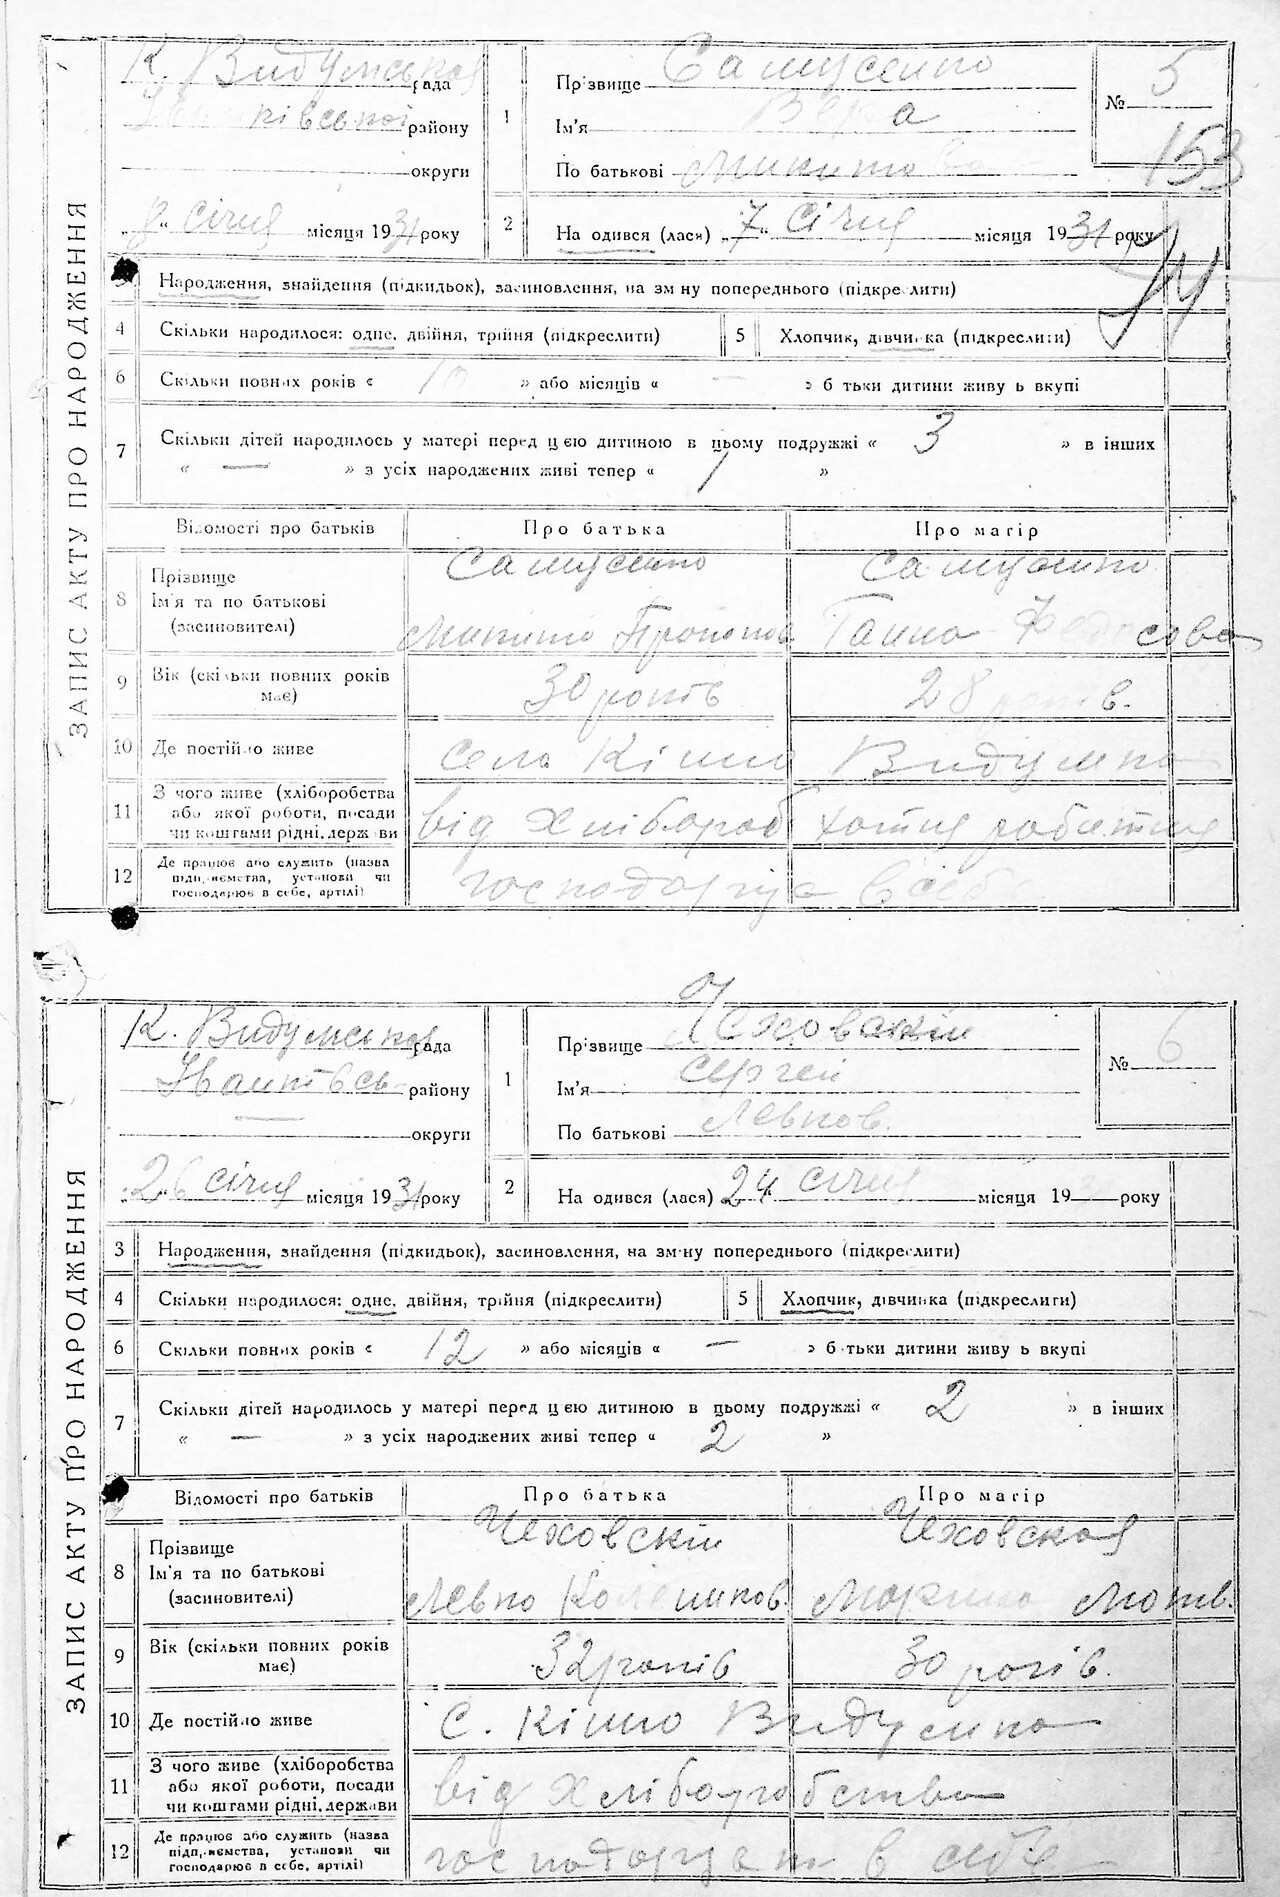 ЗАПИС АКТУ ПРО НАРОДЖЕННЯ
К. Видумської рада
районy
округи
„8“ січня місяця 1931 року
1
Прізвище Самусенко
Ім'я Вера
По батькові Микитова
№ 5
153
2
На одився (лася) „7“ Січня місяця 1931 року
3 Народження, знайдення (підкидьок), засиновлення, на зм ну попереднього (підкреслити)
4 Скільки народилося: одне, двійня, трійня (підкреслити)
5 Хлопчик, дівчинка (підкреслити)
6 Скільки повних років « 10 » або місяців « — » б тьки дитини живу ь вкупі
7 Скільки дітей народилось у матері перед цією дитиною в цьому подружжі « 3 » в інших
« — » з усіх народжених живі тепер « 1 »
Відомості про батьків Про батька Про матір
8 Прізвище
Ім'я та по батькові
(засиновителі)
Самусенко Самусенко
Микита Прокопов Ганна Федосова
9 Вік (скільки повних років має) 30 років 28 років.
10 Де постійно живе село Кішно Видумка
11 З чого живе (хліборобства
або якої роботи, посади
чи коштами рідні, держави
від Хлібороб
12 Де працює або служить (назва
підприємства, установи чи
господарює в себе, артілі)
господарує в себе
ЗАПИС АКТУ ПРО НАРОДЖЕННЯ
К. Видумської рада
Іванківсь району
— округи
„26“ січня місяця 1931 року
1
Прізвище Чеховскій
Ім'я Сергей
По батькові Левков.
№ 6
2
На одився (лася) 24 січня місяця 19 року
3 Народження, знайдення (підкидьок), засиновлення, на зм ну попереднього (підкреслити)
4 Скільки народилося: одне, двійня, трійня (підкреслити)
5 Хлопчик, дівчинка (підкреслити)
6 Скільки повних років « 12 » або місяців « — » б тьки дитини живу ь вкупі
7 Скільки дітей народилось у матері перед цією дитиною в цьому подружжі « 2 » в інших
« — » з усіх народжених живі тепер « 2 »
Відомості про батьків Про батька Про матір
8 Прізвище
Ім'я та по батькові
(засиновителі)
Чеховскій Чеховская
Левко Марина Мотв.
9 Вік (скільки повних років має) 32 років 30 років.
10 Де постійно живе С. Кішно Видумка
11 З чого живе (хліборобства
або якої роботи, посади
чи коштами рідні, держави
від Хліборобства
12 Де працює або служить (назва
підприємства, установи чи
господарює в себе, артілі)
в себе